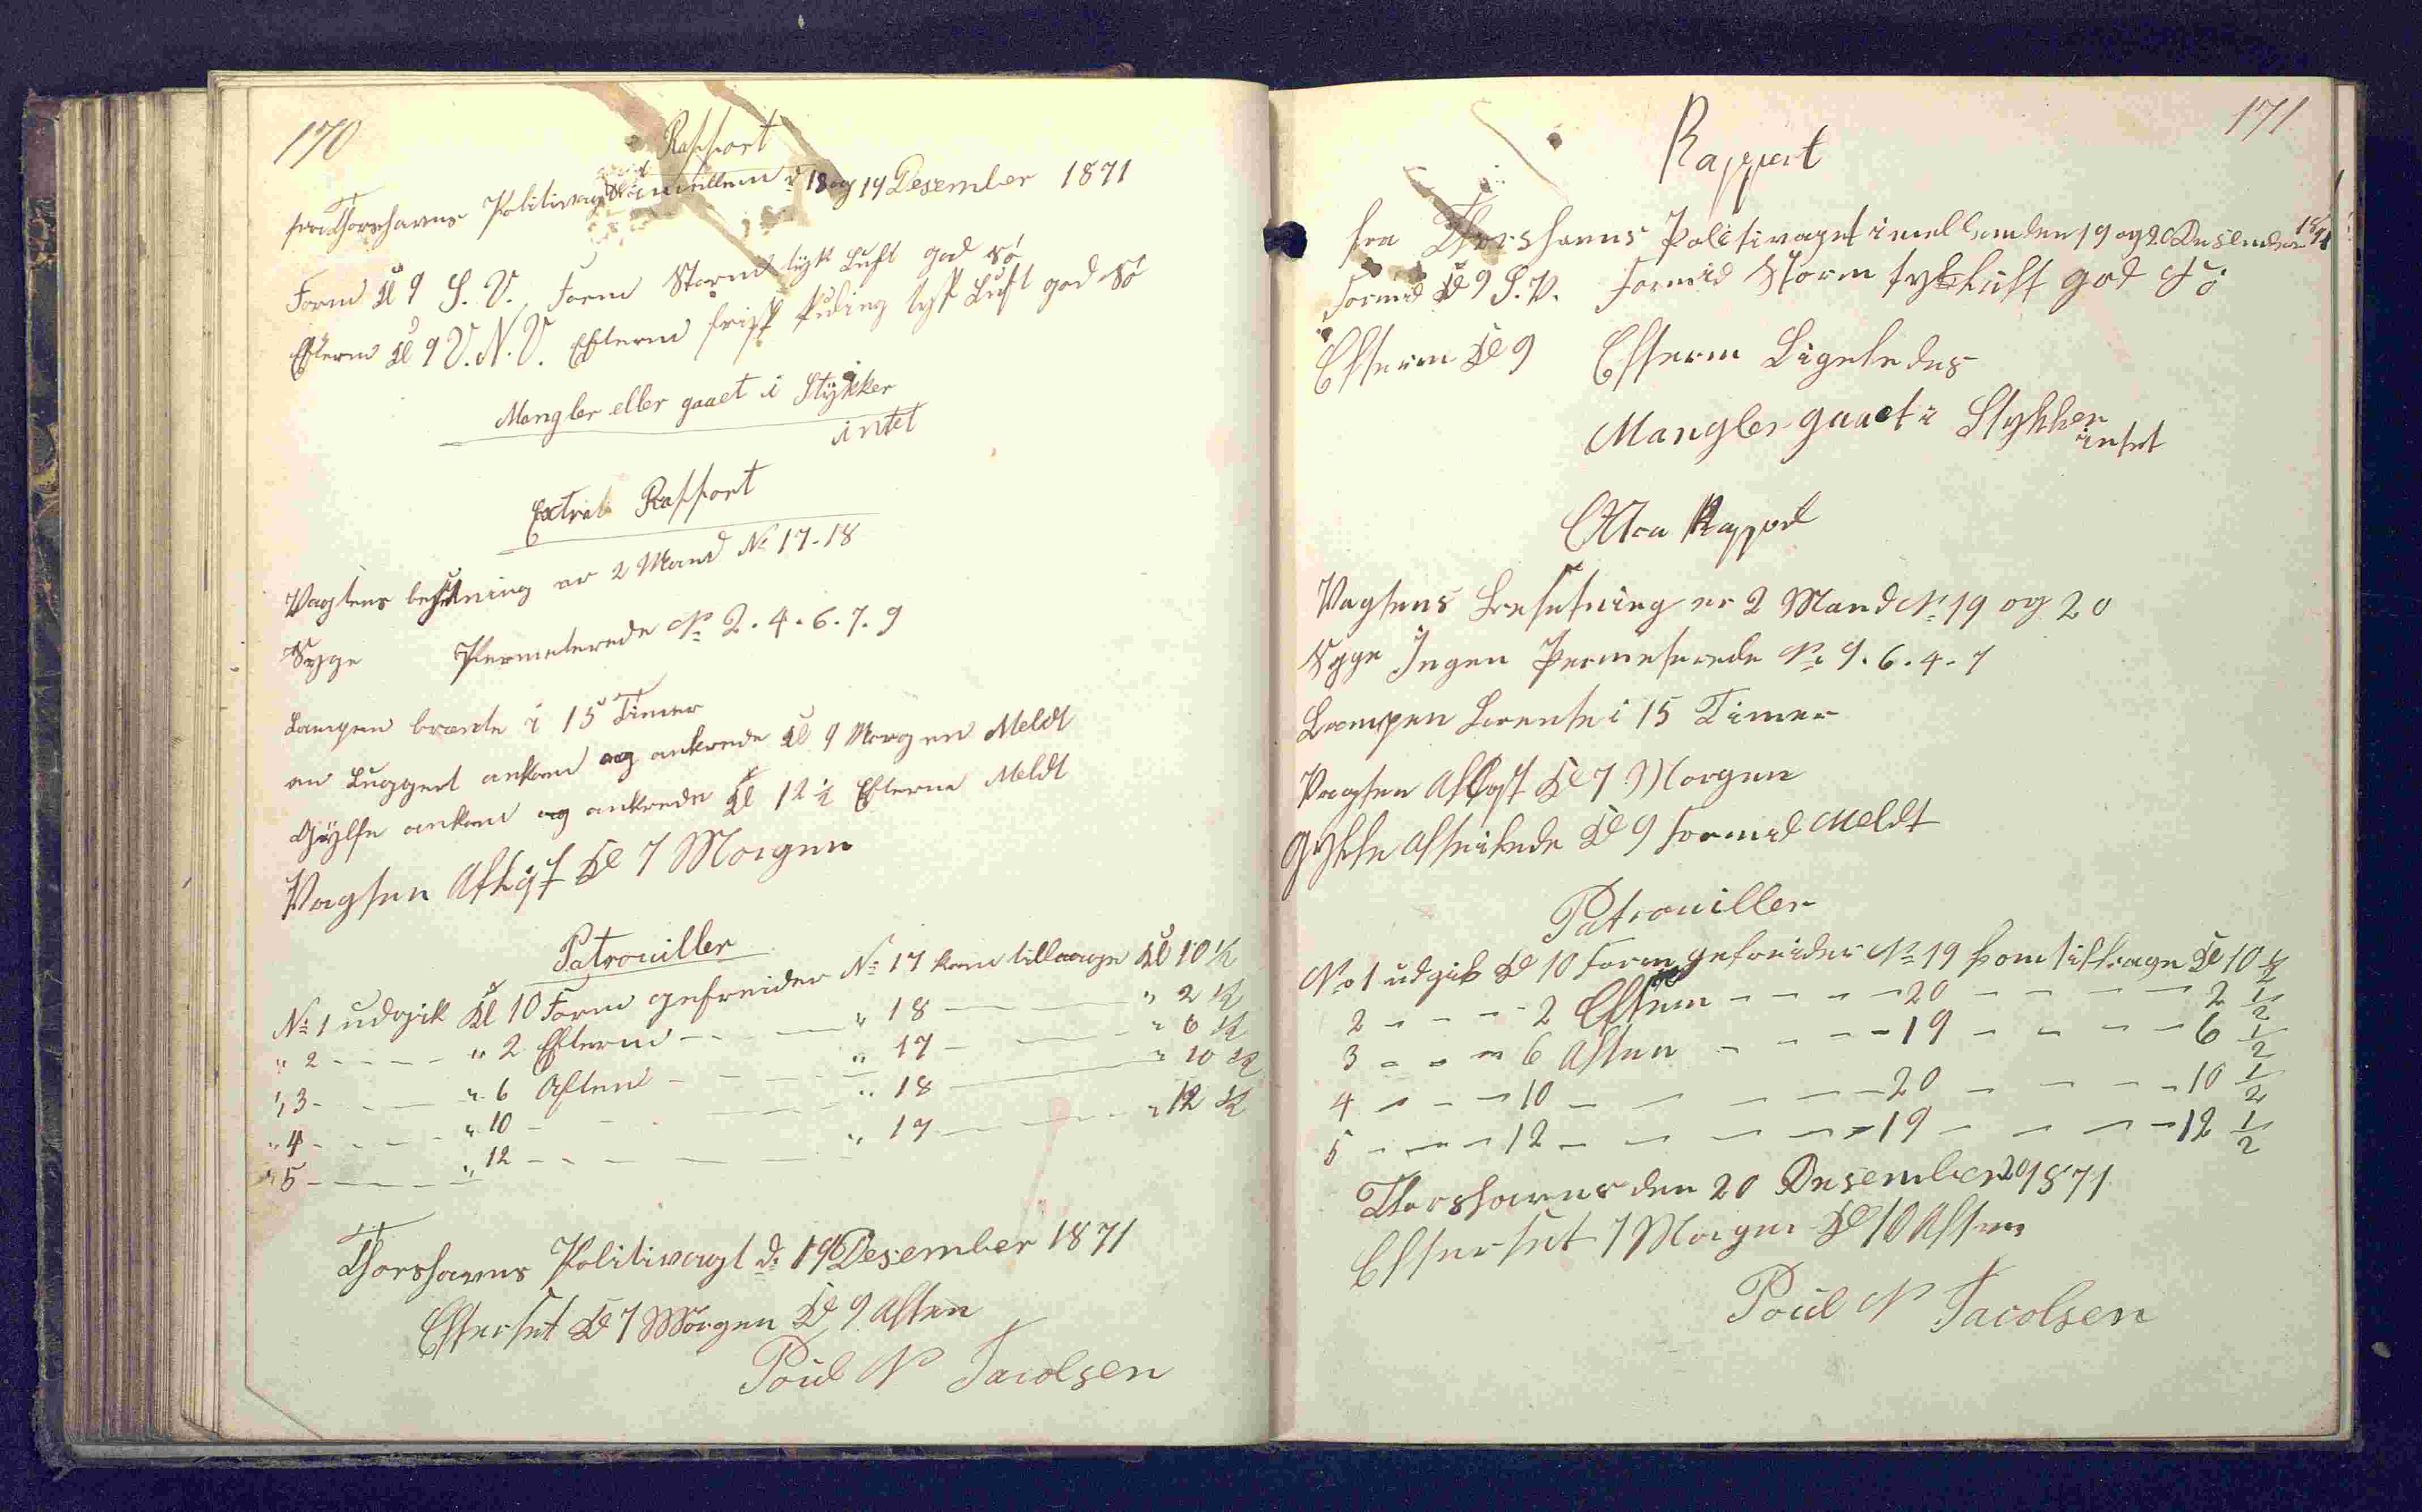 170
Rapport
fra Thorshavns Politivagt imellem d. 18 og 19 Desember 1871
Form Kl 9 S. V. Form Storm tyk Luft god Sö
Efterm Kl 9 V. N. V. Efterm frisk Kuling tyk Luft god Sö
Mangler eller gaaet i Stykker
intet
Extrat Rapport
Vagtens besetning er 2 Mand No 17-18
Syge Permeterede No 2. 4. 6. 7. 9
Lampen brænte i 15 Timer
en Luggert ankom og ankrede Kl 9 Morgen Meldt
Gylfe ankom og ankrede Kl 12 ½ Efterm Meldt
Vagten Afløst Kl 7 Morgen
Patrouiller
No 1 udgik Kl 10 Form gefreider No 17 kom tilbage Kl 10 ½
" 2 - - - - " 2 Efterm - - - " 18 - - - " 2 ½
" 3 - - - - " 6 Aften - - - " 17 - - - " 6 ½
" 4 - - - - " 10 - - - " 18 - - - " 10 ½
" 5 - - - - " 12 - - - " 17 - - - " 12 ½
Thorshavns Politivagt d. 19 Desember 1871
Efterset Kl 7 Morgen Kl 9 Aften
Poul N Jacobsen
171
Rapport
fra Thorshavns Politivagt imellem den 19 og 20 Desember 1871
Formd Kl 9 S. V. Formid Storm tyk Luft god Sö
Efterm Kl 9 Efterm Ligeledes
Mangler gaaet i Stykker
intet
Extra Rappod
Vagtens Besetning er 2 Mand No 19 og 20
Syge Ingen Permeterede No 9. 6. 4. 7
Lampen Brente i 15 Timer
Vagten Afløst Kl 7 Morgen
Gylfe Afseilede Kl 9 Formid Meldt
Patrouiller
No 1 udgik Kl 10 Form gefreider No 19 kom tilbage Kl 10 ½
2 - - - - 2 Efterm - - - - 20 - - - - 2 ½
3 - - - 6 Aften - - - - 19 - - - - 6 ½
4 - - - 10 - - - - - 20 - - - - 10 ½
5 - - - 12 - - - - - 19 - - - - 12 ½
Thorshavns den 20 Desember 1871
Efterset 7 Morgen Kl 10 Aften
Poul N Jacobsen